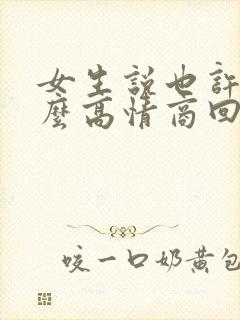 女生說也許
麼高情商回
咬一口奶黃包